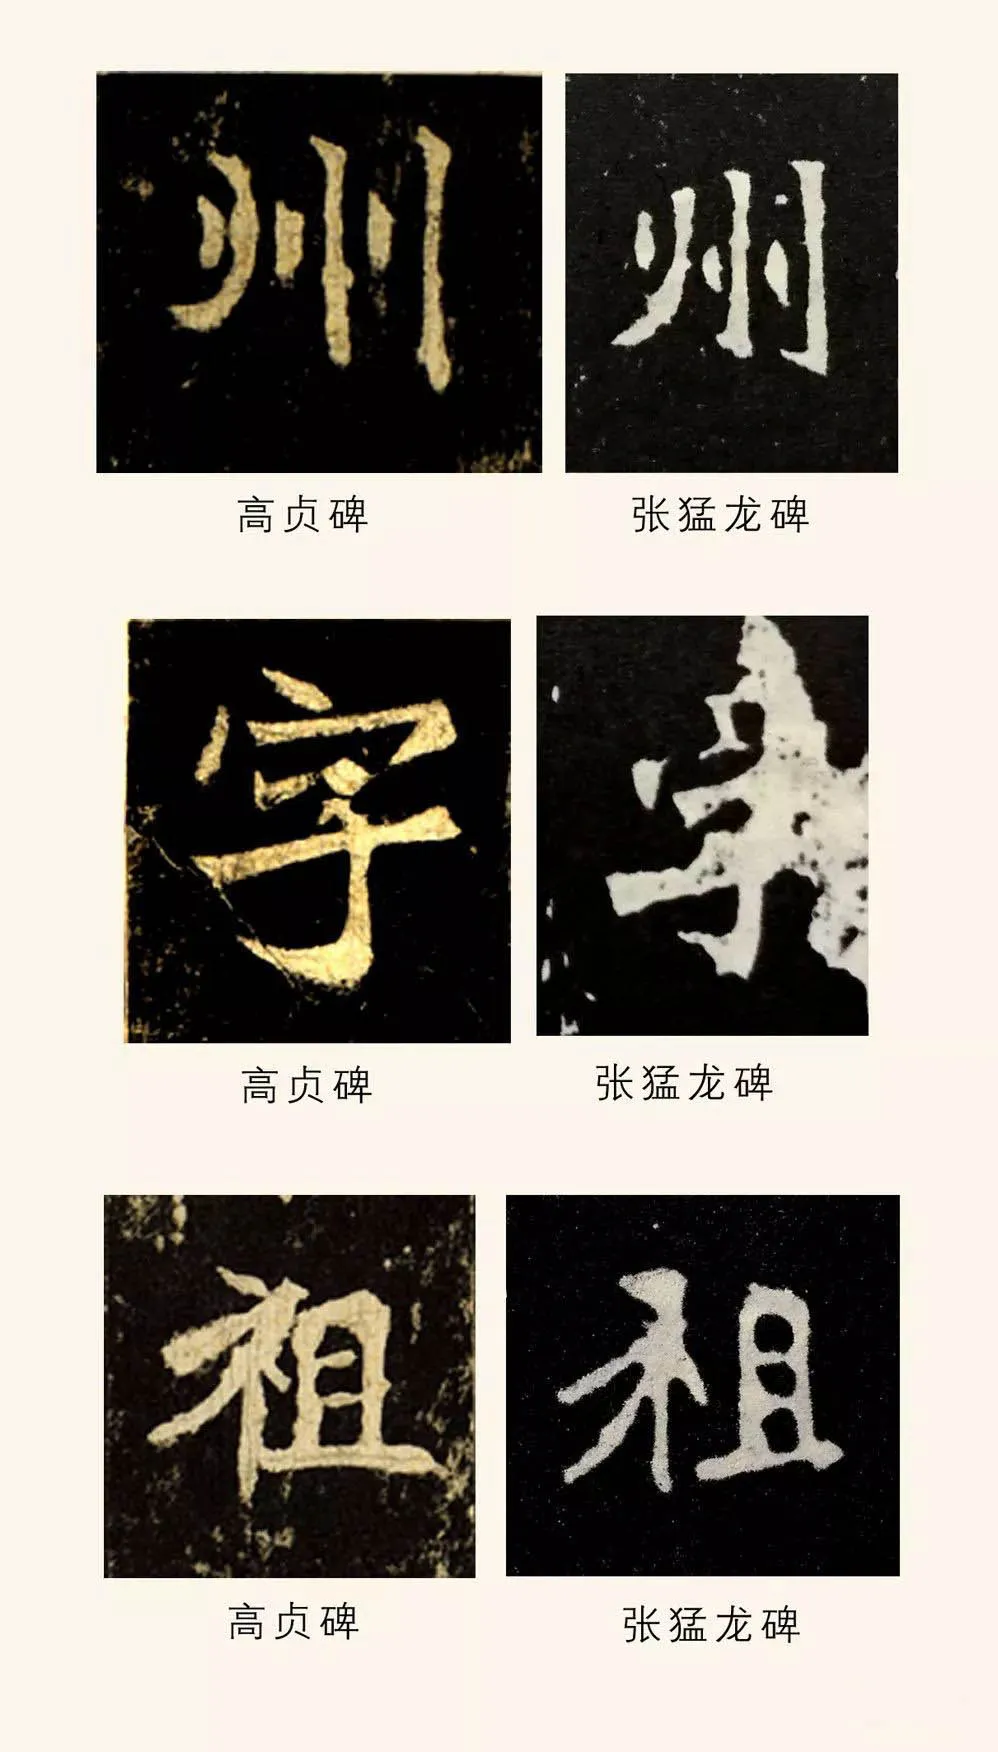 州 州
高贞碑 张猛龙碑
字 字
高贞碑 张猛龙碑
祖 祖
高贞碑 张猛龙碑